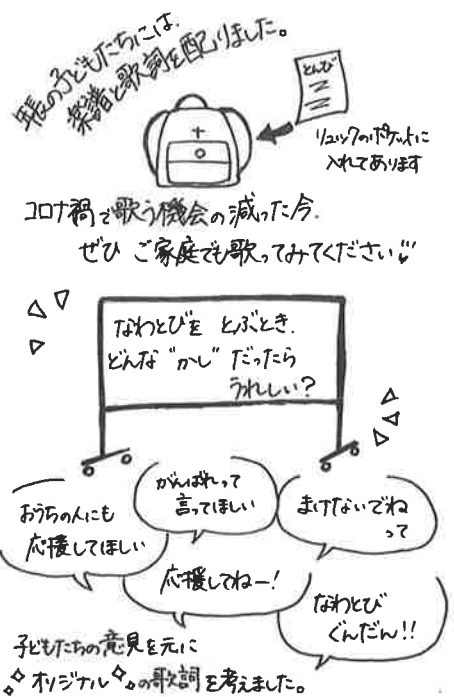 年長の子どもたちには、
楽譜と歌詞を配りました。
とんび
リュックのポケットに
入れてあります
コロナ禍で歌う機会の減った今、
ぜひ ご家庭でも歌ってみてください
なわとびを とぶとき、
どんな“かし”だったら
うれしい?
がんばれって
言ってほしい
おうちの人にも
応援してほしい
まけないでね
って
応援してねー!
なわとび
ぐんだん!!
子どもたちの意見を元に
オリジナルの歌詞を考えました。